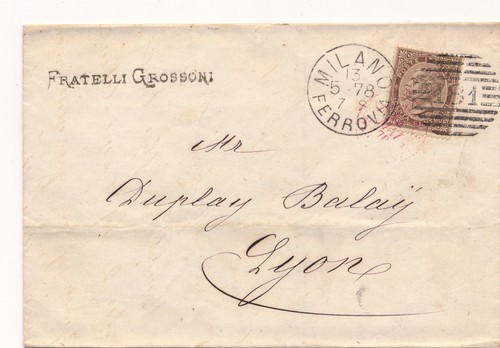 FRATELLI GROSSONI
MILANO
13
5 78
7 S
FERROVIA
31
Mr
Duplay Balaÿ
Lyon